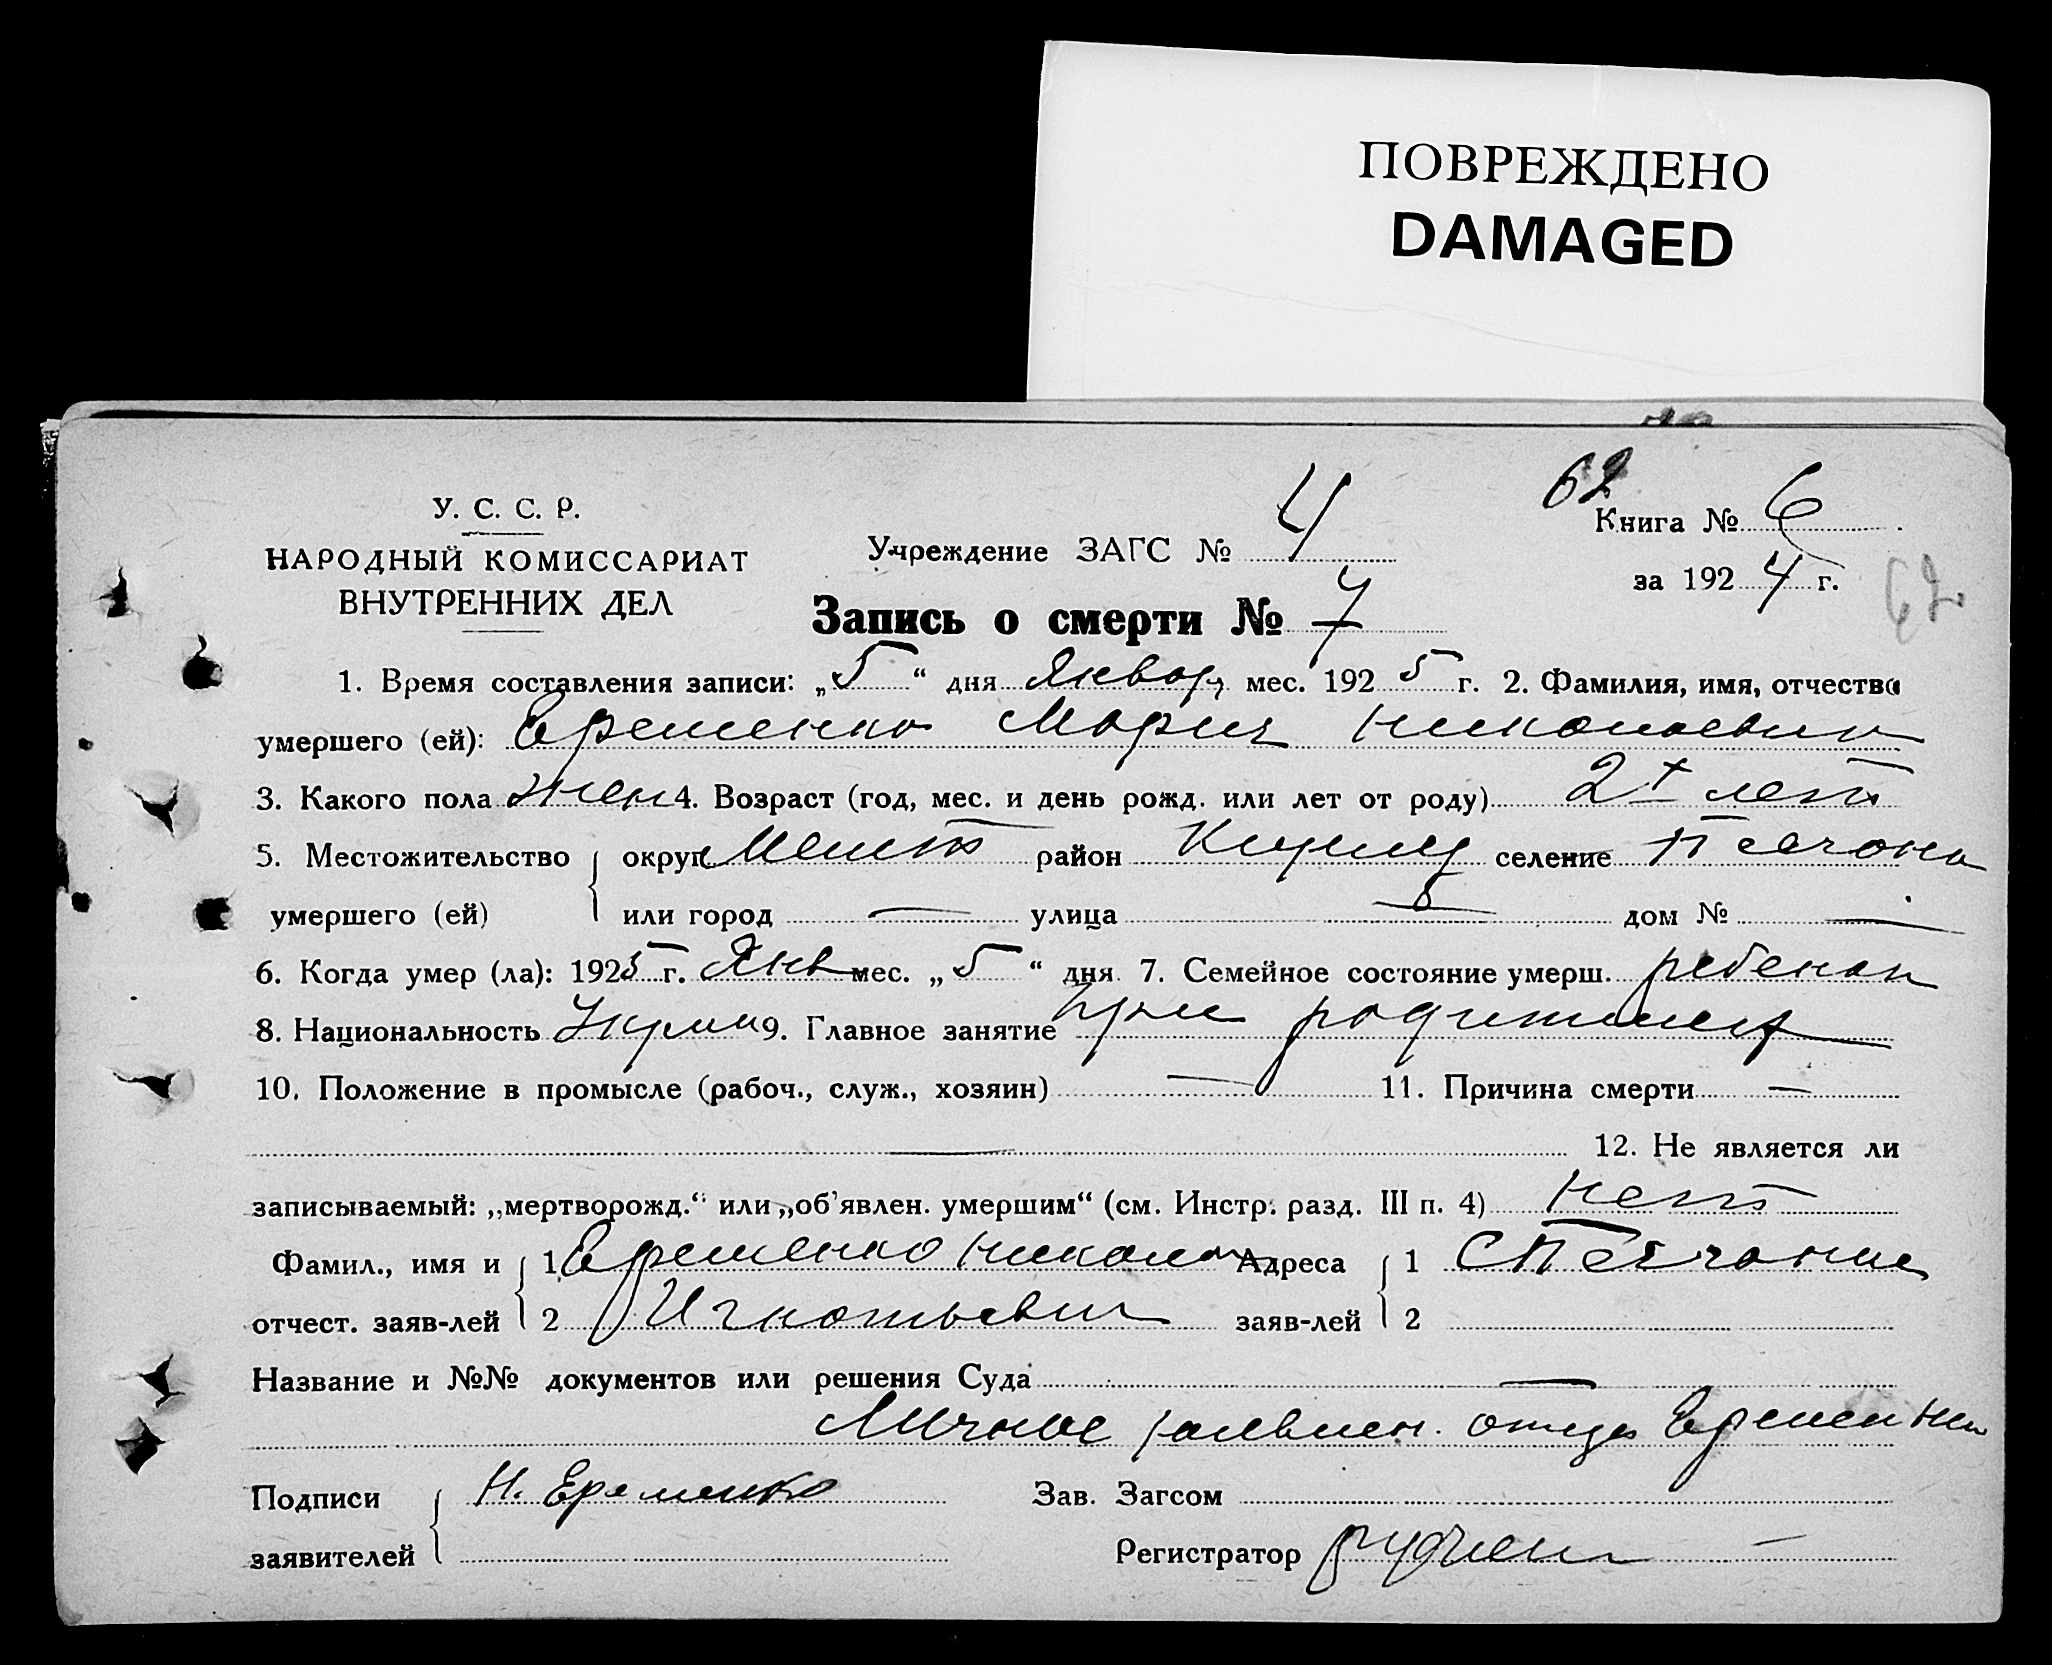 ПОВРЕЖДЕНО
DAMAGED
62
У. С. С. Р.
НАРОДНЫЙ КОМИССАРИАТ
ВНУТРЕННИХ ДЕЛ
Учреждение ЗАГС № 4
Книга № 6
за 1924 г.
62
Запись о смерти № 7
1. Время составления записи: „5“ дня Январ мес. 1925 г. 2. Фамилия, имя, отчество
умершего (ей): Еременко Мария Николаевна
3. Какого пола жен 4. Возраст (год, мес. и день рожд. или лет от роду) 2 лет
5. Местожительство округ район селение Песчана
умершего (ей) или город — улица — дом № —
6. Когда умер (ла): 1925 г. Янв мес. „5“ дня 7. Семейное состояние умерш. ребенок
8. Национальность 9. Главное занятие при родителях
10. Положение в промысле (рабоч., служ., хозяин) — 11. Причина смерти —
— 12. Не является ли
записываемый: „мертворожд.“ или „об'явлен. умершим“ (см. Инстр. разд. III п. 4) нет
Фамил., имя и 1 Еременко Николай Адреса 1 С Песчаное
отчест. заяв-лей 2 Игнатьевич заяв-лей 2
Название и №№ документов или решения Суда —
Личное заявлен. отца Еременко
Подписи Н. Еременко Зав. Загсом
заявителей Регистратор